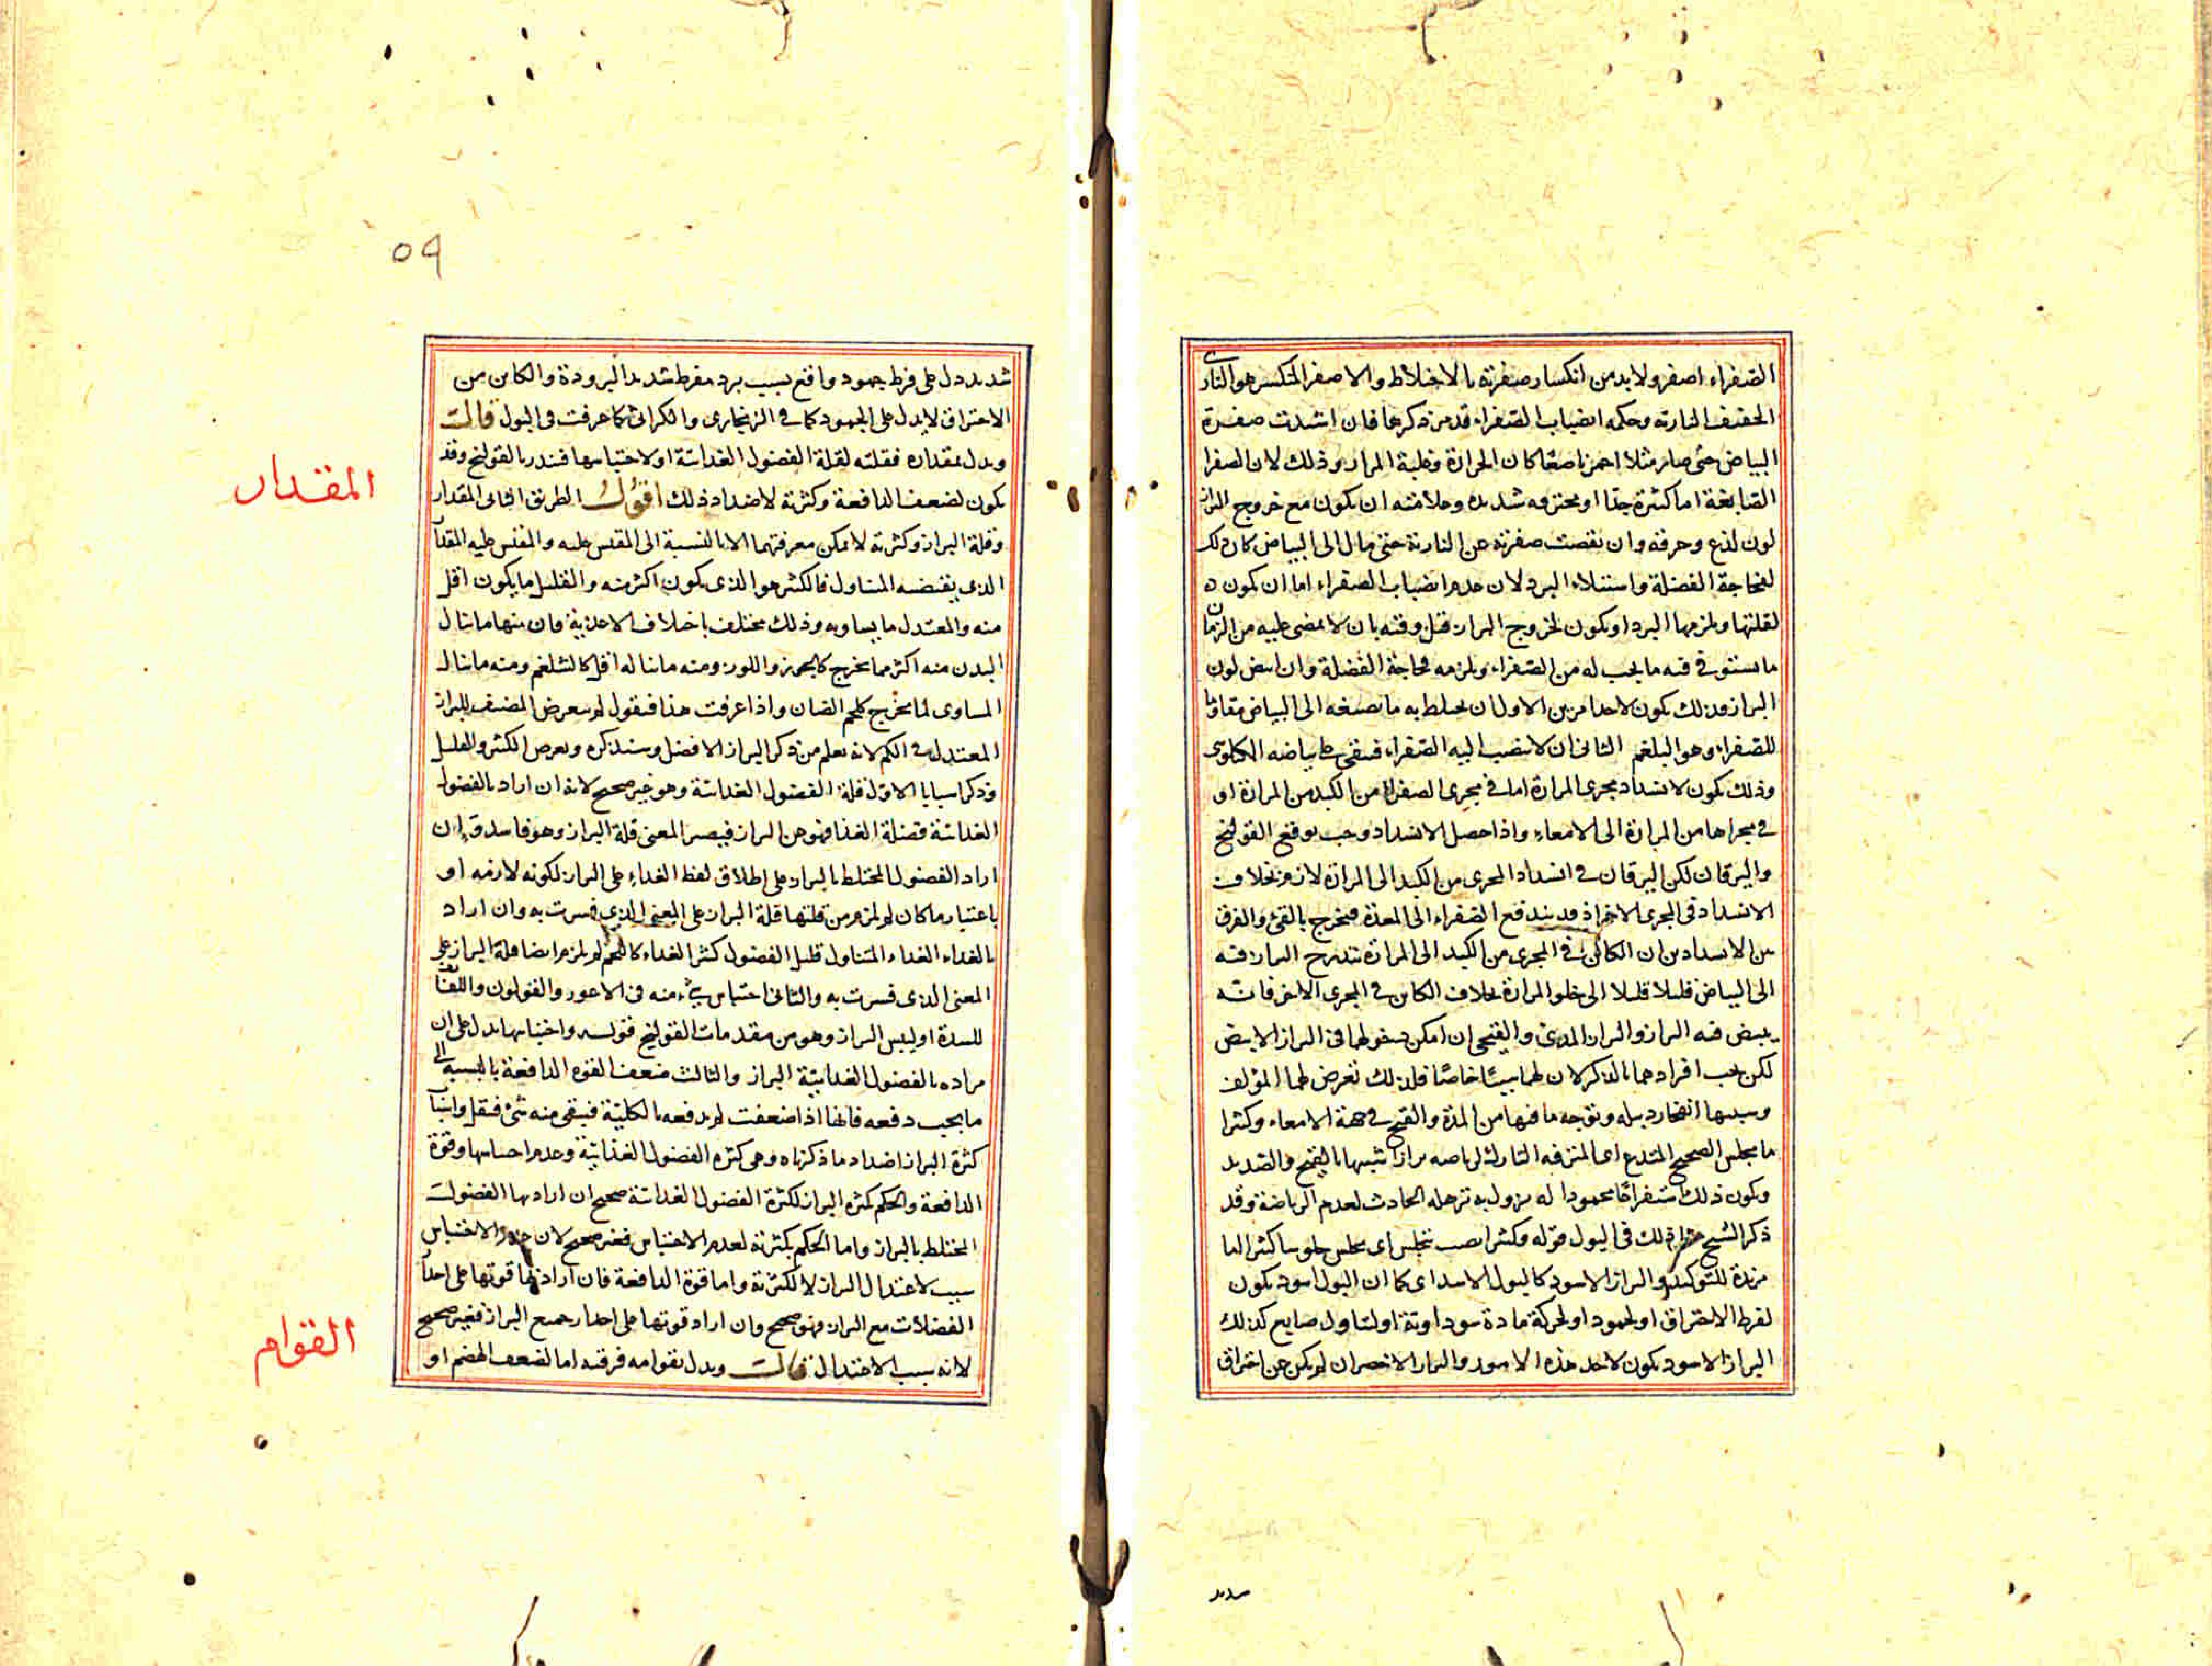 الصفراء اصفر ولا بد من انكسار صفرته بالاختلاط والاصفر المنكسر هو النارى
الخفيف النارية وحكمه انضباب الصفراء قد مر ذكرها فان اشتدت صفرة
البياض حتى صار مثلا احمر ناصعا كان لحرارة وغلبة المرار وذلك لان الصفرا
الصابغة اما كثيرة جدا او محترقه شديده وعلامته ان يكون مع خروج البراز
لون لذع وحرقه وان نقصت صفرته عن النارية حتى مال الى البياض كان ذلك
لفجاجة الفضلة واستيلاء البرد لان عدم انضباب الصفراء اما ان يكون ه
لقلتها ويلزمها البرد او يكون لخروج البراز قبل وقته بان لا يمضى عليه من الزمان
ما يستوفى فيه ما يجب له من الصفراء ويلزمه فجاجة الفضلة وان ابيض لون
البراز فذلك يكون لاحد امرين الاول ان يختلط به ما يصبغه الى البياض مقاوما
للصفراء وهو البلغم الثانى ان لا ينصب اليه الصفراء فيبقى على بياضه الكيلوسى
وذلك يكون لانسداد مجرى المرارة اما فى مجرى الصفراء من الكبد من المرارة او
فى مجراها من المرارة الى الامعاء واذا حصل الانسداد وجب توقع القولنج
واليرقان لكن اليرقان فى انسداد المجرى من الكبد الى المرارة لازم بخلاف
الانسداد فى المجرى الاخر اذ قد يندفع الصفراء الى المعدة فيخرج بالقئ والفرق
بين الانسدادين ان الكائن فى المجرى من الكبد الى المرارة يتدرج البراز فيه
الى البياض قليلا قليلا الى خلو المرارة بخلاف الكائن فى المجرى الاخر فانه
يبيض فيه البراز والبراز المدى والقيحى ان امكن دخولهما فى البراز الابيض
لكن يجب افرادهما بالذكر لان لهما سببا خاصا فلذلك تعرض لهما المؤلف
وسببها انفجار دبيله وتوجه ما فيها من المدة والقيح فى جهة الامعاء وكثيرا
ما يجلس الصحيح المتدع اى المترفه التارك لرياضه برازا شبيها بالقيح والصديد
ويكون ذلك استفراغا محمودا له يزول به ترهله الحادث لعدم الرياضة وقد
ذكر الشيخ ذلك فى البول قوله وكثيرا نصب بيجلس اى يجلس جلوسا كثيرا لما
مزيدة للتوكيد والبراز الاسود كالبول الاسود اى كما ان البول اسود يكون
لفرط الاحتراق او لجمود او لحركة مادة سوداوية او لتناول صابغ كذلك
البراز الاسود يكون لاحد هذه الامور والبراز الاخضر ان لم يكن عن احتراق
شديد
٥٩
شديد دل على فرط جمود واقع بسبب برد مفرط شديد البرودة والكائن من
الاحتراق لا يدل على الجمود كما فى الزنجارى والكراثى كما عرفت فى البول قالت
ويدل بمقداره فقلته لقلة الفضول الغذائية او لاحتباسها فينذر بالقولنج وقد
يكون لضعف الدافعة وكثرته لاضداد ذلك اقول الطريق الثانى المقدار
المقدار
وقلة البراز وكثرته لا يمكن معرفتهما الا بالنسبة الى المقيس عليه والمقيس عليه المقدار
الذى يقتضيه المتناول فالكثير هو الذى يكون اكثر منه والقليل ما يكون اقل
منه والمعتدل ما يساويه وذلك مختلف باختلاف الاغذية فان منها ما ينال
البدن منه اكثر مما يخرج كالجوز واللوز ومنه ما يناله اقل كالشلغم ومنه ما ينال
المساوى لما يخرج كلحم الضان واذا عرفت هذا فنقول لم يتعرض المصنف للبراز
المعتدل فى الكم لانه يعلم من ذكر البراز الافضل وسنذكره وتعرض للكثير والقليل
وذكر اسبابا الاول قلة الفضول الغذائية وهو غير صحيح لانه ان اراد بالفضول
الغذائية فضلة الغذا فهو عين البراز فيصير المعنى قلة البراز وهو فاسد وان
اراد الفضول المختلط بالبراز على اطلاق لفظ الغذاء على البراز لكونه لازمه او
باعتبار ما كان لم يلزم من قلتها قلة البراز على المعنى الذى فسرت به وان اراد
بالغذاء الغذاء المتناول قليل الفضول كثير الغذاء كاللحم لم يلزم ايضا قلة البراز على
المعنى الذى فسرت به والثانى احتباس شئ منه فى الاعور والقولون واللفائف
للسدة او ليبس البراز وهو من مقدمات القولنج قوله واحتباسها يدل على ان
مراده بالفضول الغذائية البراز والثالث ضعف القوه الدافعة بالنسبة الى
ما يجب دفعه فانها اذا ضعفت لم يدفعه بالكلية فيبقى منه شئ فيقل واسباب
كثرة البراز اضداد ما ذكرناه وهى كثرة الفضول الغذائية وعدم احتباسها وقوة
الدافعة والحكم بكثره البراز لكثرة الفضول الغذائية صحيح ان اراد بها الفضول
المختلط بالبراز واما الحكم بكثرته لعدم الاحتباس فغير صحيح لان عدم الاحتباس
سبب لاعتدال البراز لا لكثرته واما قوة الدافعة فان اراد بها قوتها على احدار
الفضلات مع البراز فهو صحيح وان اراد قوتها على احدار جميع البراز فغير صحيح
لانه سبب الاعتدال قالت ويدل بقوامه فرقته اما لضعف الهضم او
القوام